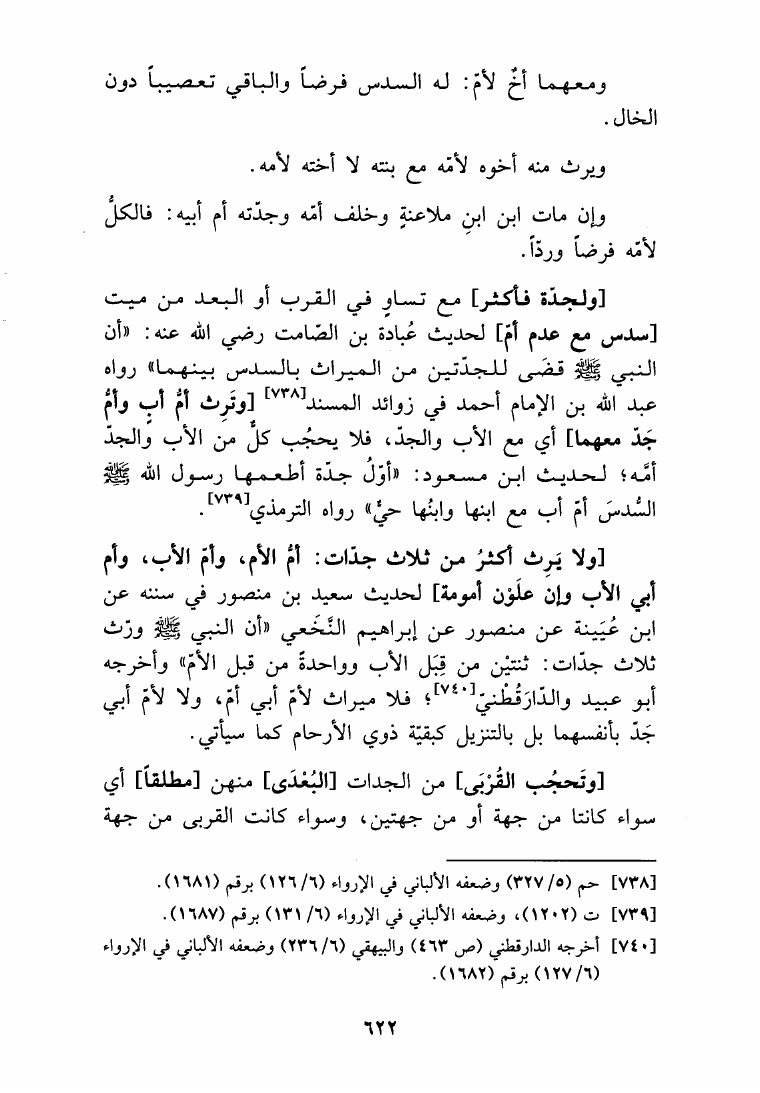 ومعهما أخٌ لأمّ: له السدس فرضاً والباقي تعصيباً دون
الخال.
ويرث منه أخوه لأمّه مع بنته لا أخته لأمه.
وإن مات ابن ابنِ ملاعنةٍ وخلف أمّه وجدّته أم أبيه: فالكلُّ
لأمّه فرضاً وردّاً.
[ولجدّة فأكثر] مع تساوٍ في القرب أو البعد من ميت
[سدس مع عدم أمّ] لحديث عُبادة بن الصّامت رضي الله عنه: «أن
النبي ﷺ قضَى للجدّتين من الميراث بالسدس بينهما» رواه
عبد الله بن الإمام أحمد في زوائد المسند[٧٣٨] [وتَرِث أمُّ أبٍ وأمُّ
جَدّ معهما] أي مع الأب والجدّ، فلا يحجُب كلٌّ من الأب والجدّ
أمَّه؛ لحديث ابن مسعود: «أوّلُ جدّة أطعمها رسول الله ﷺ
السُّدسَ أمّ أب مع ابنها وابنُها حيٌّ» رواه الترمذي[٧٣٩].
[ولا يَرِث أكثرُ من ثلاث جدّات: أمُّ الأم، وأمّ الأب، وأم
أبي الأب وإن علَوْن أمومة] لحديث سعيد بن منصور في سننه عن
ابن عُيَينة عن منصور عن إبراهيم النَّخَعي «أن النبي ﷺ ورّث
ثلاث جدّات: ثنتيْن من قِبَل الأب وواحدةً من قبل الأمّ» وأخرجه
أبو عبيد والدّارَقُطْنيّ[٧٤٠]؛ فلا ميراث لأمّ أبي أمّ، ولا لأمّ أبي
جَدّ بأنفسهما بل بالتنزيل كبقيّة ذوي الأرحام كما سيأتي.
[وتَحجُب القُرْبَى] من الجدات [البُعْدَى] منهن [مطلقاً] أي
سواء كانتا من جهة أو من جهتين، وسواء كانت القربى من جهة
[٧٣٨] حم (٥/ ٣٢٧) وضعفه الألباني في الإرواء (٦/ ١٢٦) برقم (١٦٨١).
[٧٣٩] ت (١٢٠٢)، وضعفه الألباني في الإرواء (٦/ ١٣١) برقم (١٦٨٧).
[٧٤٠] أخرجه الدارقطني (ص ٤٦٣) والبيهقي (٦/ ٢٣٦) وضعفه الألباني في الإرواء
(٦/ ١٢٧) برقم (١٦٨٢).
٦٢٢